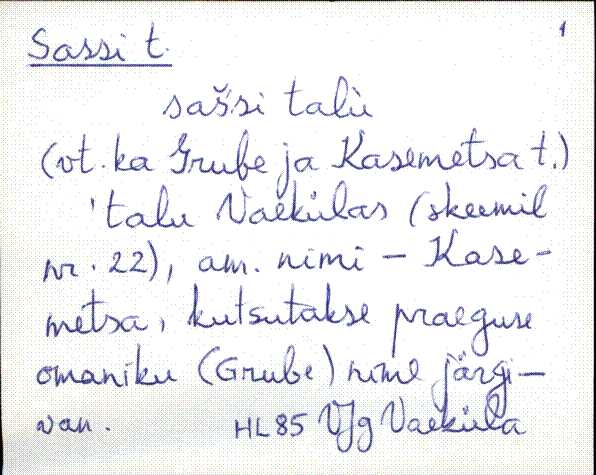 1
Sassi t.
sašsi talù
(vt. ka Grube ja Kasemetsa t.)
'talu Vaekülas (skeemil
nr. 22), am. nimi – Kase-
metsa, kutsutakse praeguse
omaniku (Grube) nime järgi –
van. HL85 VJg Vaeküla